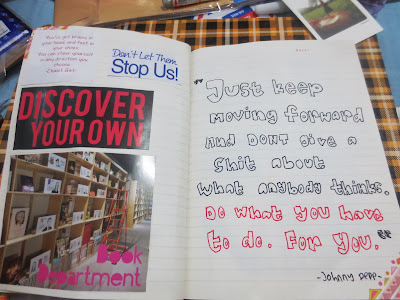 You've got brains in
your head and feet in
your shoes
You can steer yourself
in any direction you
choose.
Don't Let Them
Stop Us!
DISCOVER
YOUR OWN
Book
Department
"Just keep
moving forward
AND DONT give a
Shit about
what anybody thinks.
Do what you have
to do. For you."
-Johnny Depp-